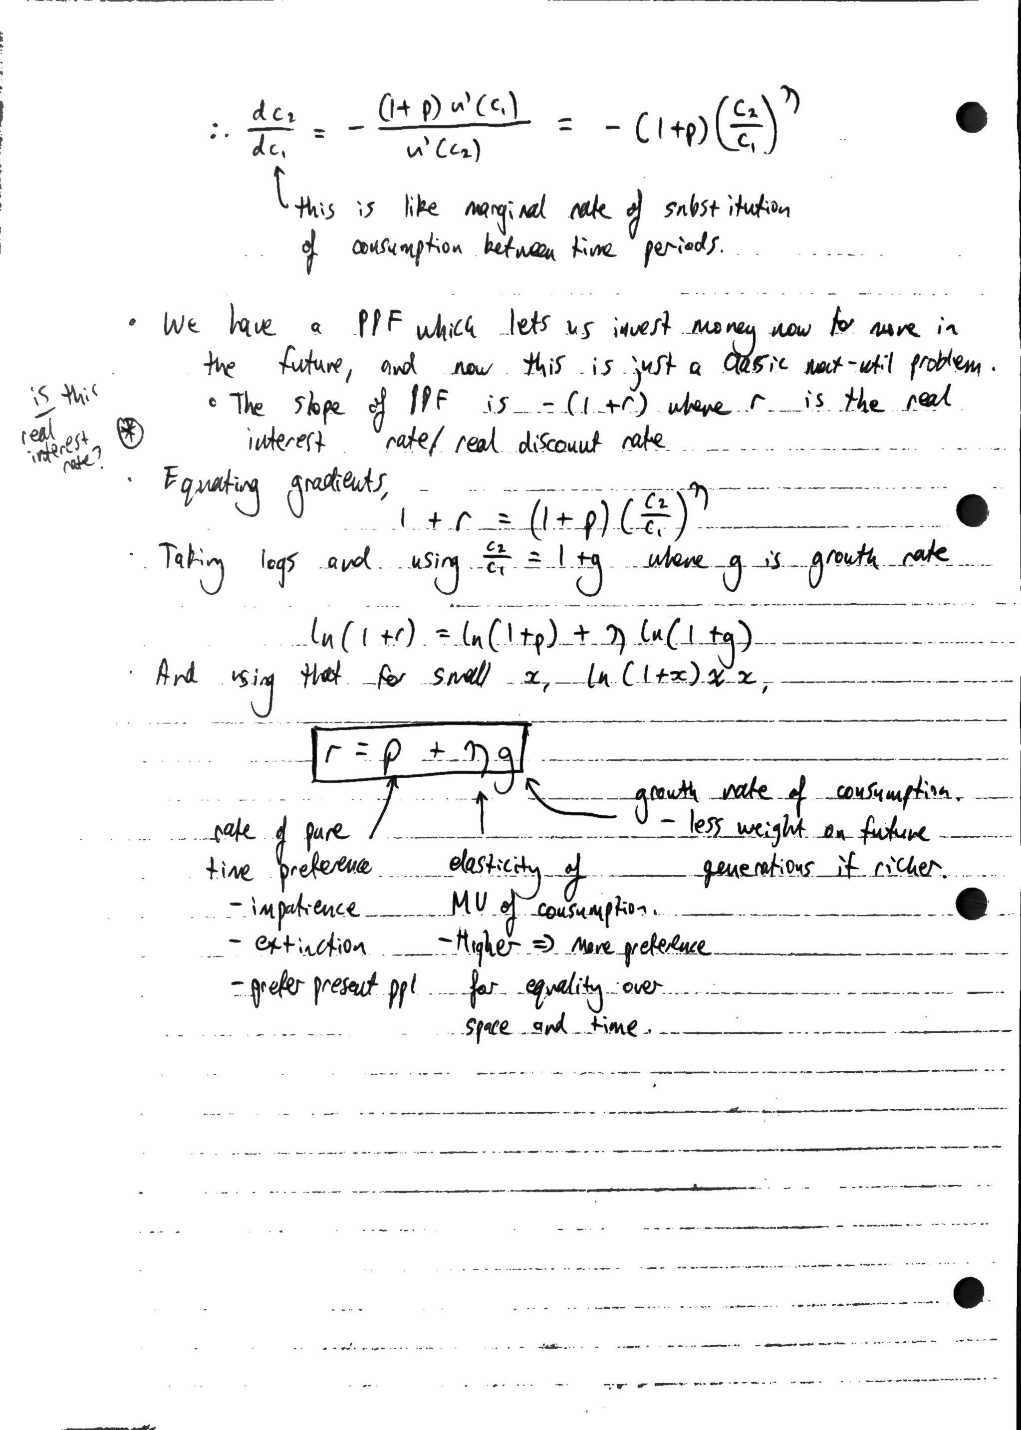 ∴ dc₂/dc₁ = - (1+ρ) u'(c₁) / u'(c₂) = - (1+ρ) (c₂/c₁)^η
this is like marginal rate of substitution
of consumption between time periods.
• We have a PPF which lets us invest money now for more in
the future, and now this is just a classic max-util problem.
• The slope of PPF is -(1+r) where r is the real
interest rate/real discount rate
is this
real
interest
rate?
*
· Equating gradients,
1 + r = (1+ρ) (c₂/c₁)^η
· Taking logs and using c₂/c₁ = 1+g where g is growth rate
ln(1+r) = ln(1+ρ) + η ln(1+g)
· And using that for small x, ln(1+x) ≈ x,
r = ρ + ηg
rate of pure
time preference
- impatience
- extinction
- prefer present ppl
elasticity of
MU of consumption.
- Higher ⇒ more preference
for equality over
space and time.
growth rate of consumption.
- less weight on future
generations if richer.